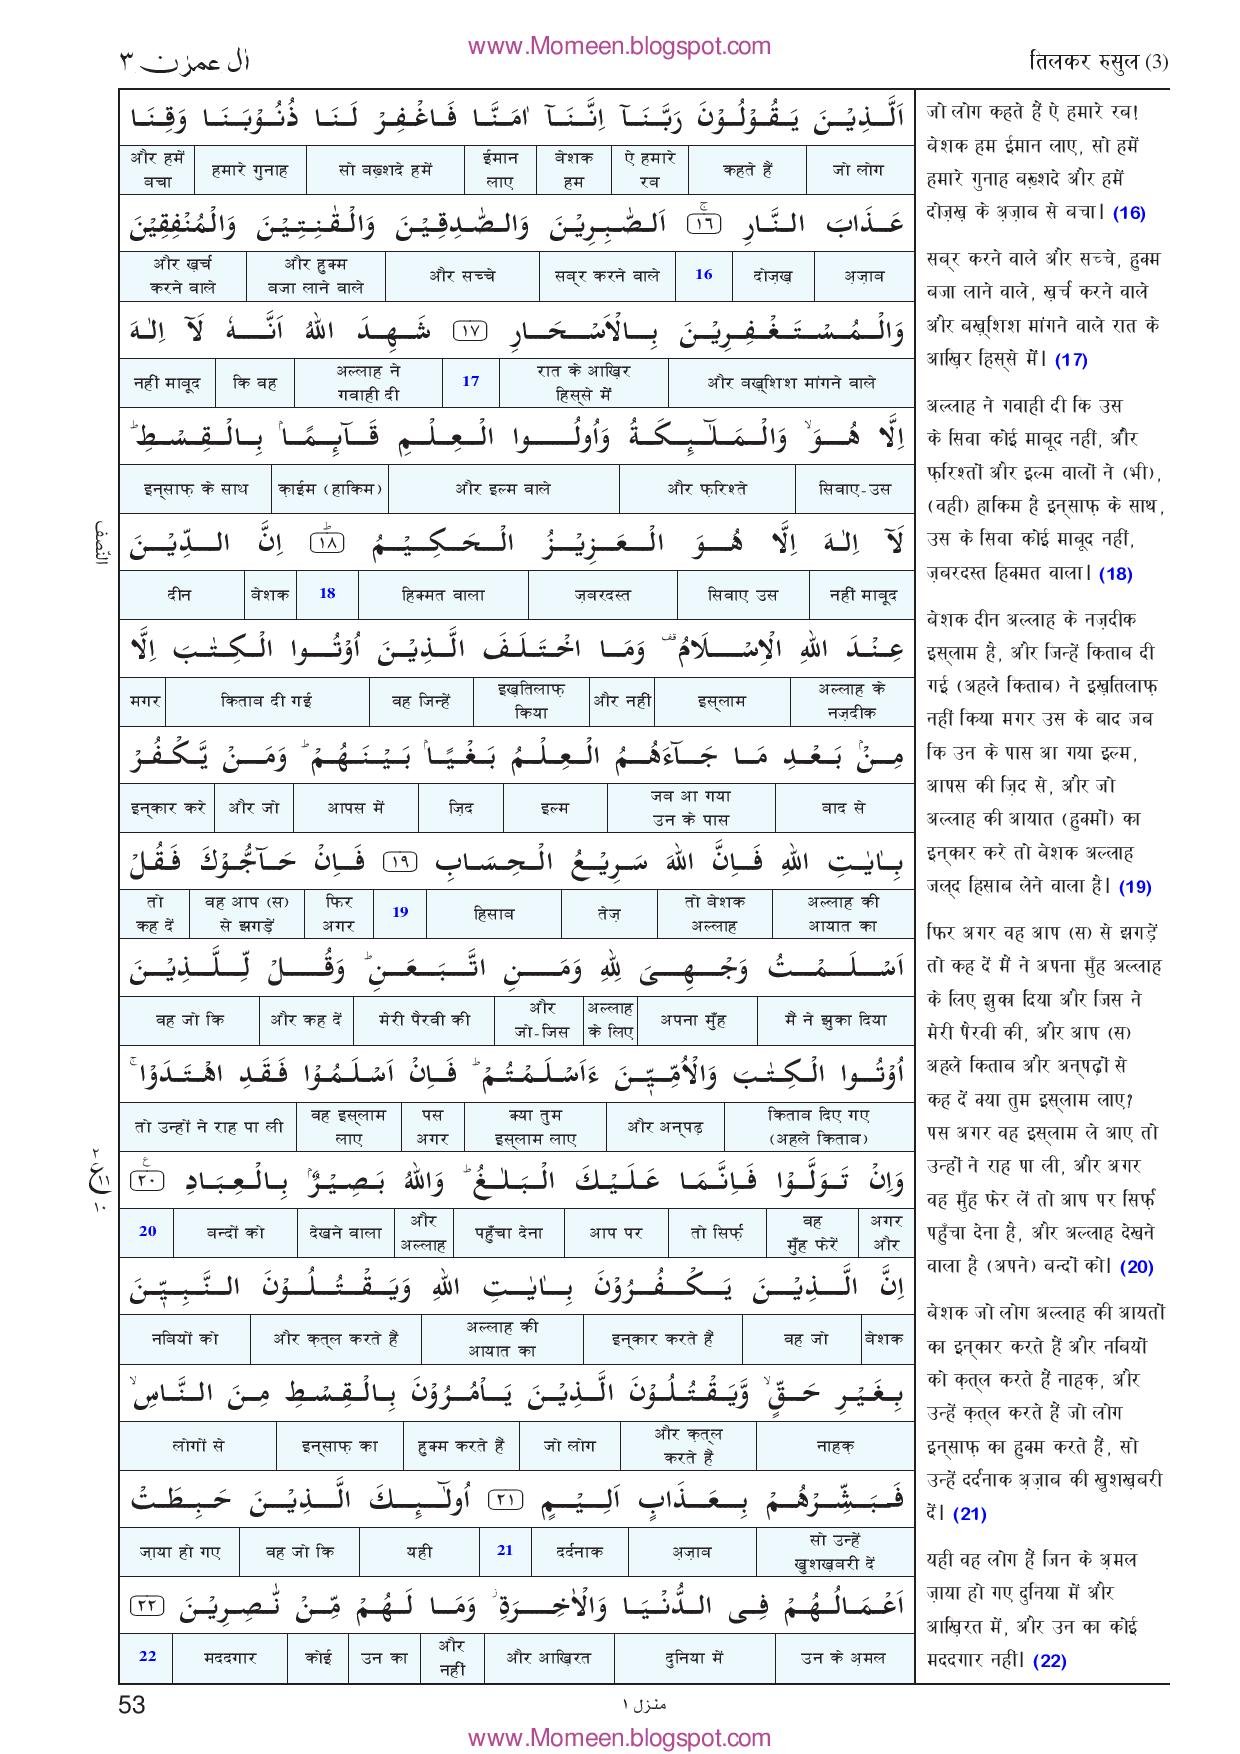 www.Momeen.blogspot.com
اٰل عمرٰن ٣
तिलकर रुसुल (3)
اَلَّذِيْنَ يَقُوْلُوْنَ رَبَّنَاۤ اِنَّنَاۤ اٰمَنَّا فَاغْفِرْ لَنَا ذُنُوْبَنَا وَقِنَا
जो लोग | कहते हैं | ऐ हमारे रब | बेशक हम | ईमान लाए | सो बख़्शदे हमें | हमारे गुनाह | और हमें बचा
عَذَابَ النَّارِ ۚ ١٦ اَلصّٰبِرِيْنَ وَالصّٰدِقِيْنَ وَالْقٰنِتِيْنَ وَالْمُنْفِقِيْنَ
अज़ाब | दोज़ख़ | 16 | सब्र करने वाले | और सच्चे | और हुक्म बजा लाने वाले | और ख़र्च करने वाले
وَالْمُسْتَغْفِرِيْنَ بِالْاَسْحَارِ ١٧ شَهِدَ اللّٰهُ اَنَّهٗ لَاۤ اِلٰهَ
और बख़्शिश मांगने वाले | रात के आख़िर हिस्से में | 17 | अल्लाह ने गवाही दी | कि वह | नहीं माबूद
اِلَّا هُوَ ۙ وَالْمَلٰٓئِكَةُ وَاُولُوا الْعِلْمِ قَآئِمًاۢ بِالْقِسْطِ ؕ
सिवाए-उस | और फ़रिश्ते | और इल्म वाले | क़ाईम (हाकिम) | इन्साफ़ के साथ
النّصف
لَاۤ اِلٰهَ اِلَّا هُوَ الْعَزِيْزُ الْحَكِيْمُ ؕ ١٨ اِنَّ الدِّيْنَ
नहीं माबूद | सिवाए उस | ज़बरदस्त | हिक्मत वाला | 18 | बेशक | दीन
عِنْدَ اللّٰهِ الْاِسْلَامُ ۟ وَمَا اخْتَلَفَ الَّذِيْنَ اُوْتُوا الْكِتٰبَ اِلَّا
अल्लाह के नज़दीक | इस्लाम | और नहीं | इख़तिलाफ़ किया | वह जिन्हें | किताब दी गई | मगर
مِنْۢ بَعْدِ مَا جَآءَهُمُ الْعِلْمُ بَغْيًاۢ بَيْنَهُمْ ؕ وَمَنْ يَّكْفُرْ
बाद से | जब आ गया उन के पास | इल्म | ज़िद | आपस में | और जो | इन्कार करे
بِاٰيٰتِ اللّٰهِ فَاِنَّ اللّٰهَ سَرِيْعُ الْحِسَابِ ١٩ فَاِنْ حَآجُّوْكَ فَقُلْ
अल्लाह की आयात का | तो बेशक अल्लाह | तेज़ | हिसाब | 19 | फिर अगर | वह आप (स) से झगड़ें | तो कह दें
اَسْلَمْتُ وَجْهِيَ لِلّٰهِ وَمَنِ اتَّبَعَنِ ؕ وَقُلْ لِّلَّذِيْنَ
मैं ने झुका दिया | अपना मुँह | अल्लाह के लिए | और जो-जिस | मेरी पैरवी की | और कह दें | वह जो कि
اُوْتُوا الْكِتٰبَ وَالْاُمِّيّٖنَ ءَاَسْلَمْتُمْ ؕ فَاِنْ اَسْلَمُوْا فَقَدِ اهْتَدَوْا ۚ
किताब दिए गए (अहले किताब) | और अन्पढ़ | क्या तुम इस्लाम लाए | पस अगर | वह इस्लाम लाए | तो उन्हों ने राह पा ली
٢ ع ١١ ١٠
وَاِنْ تَوَلَّوْا فَاِنَّمَا عَلَيْكَ الْبَلٰغُ ؕ وَاللّٰهُ بَصِيْرٌۢ بِالْعِبَادِ ٢٠
अगर और | वह मुँह फेरें | तो सिर्फ़ | आप पर | पहुँचा देना | और अल्लाह | देखने वाला | बन्दों को | 20
اِنَّ الَّذِيْنَ يَكْفُرُوْنَ بِاٰيٰتِ اللّٰهِ وَيَقْتُلُوْنَ النَّبِيّٖنَ
बेशक | वह जो | इन्कार करते हैं | अल्लाह की आयात का | और क़त्ल करते हैं | नबियों को
بِغَيْرِ حَقٍّ ۙ وَّيَقْتُلُوْنَ الَّذِيْنَ يَاْمُرُوْنَ بِالْقِسْطِ مِنَ النَّاسِ ۙ
नाहक़ | और क़त्ल करते हैं | जो लोग | हुक्म करते हैं | इन्साफ़ का | लोगों से
فَبَشِّرْهُمْ بِعَذَابٍ اَلِيْمٍ ٢١ اُولٰٓئِكَ الَّذِيْنَ حَبِطَتْ
सो उन्हें खुशख़बरी दें | अज़ाब | दर्दनाक | 21 | यही | वह जो कि | ज़ाया हो गए
اَعْمَالُهُمْ فِى الدُّنْيَا وَالْاٰخِرَةِ ۫ وَمَا لَهُمْ مِّنْ نّٰصِرِيْنَ ٢٢
उन के अमल | दुनिया में | और आख़िरत | और नहीं | उन का | कोई | मददगार | 22
जो लोग कहते हैं ऐ हमारे रब!
बेशक हम ईमान लाए, सो हमें
हमारे गुनाह बख़्शदे और हमें
दोज़ख़ के अज़ाब से बचा। (16)
सब्र करने वाले और सच्चे, हुक्म
बजा लाने वाले, ख़र्च करने वाले
और बख़्शिश मांगने वाले रात के
आख़िर हिस्से में। (17)
अल्लाह ने गवाही दी कि उस
के सिवा कोई माबूद नहीं, और
फ़रिश्तों और इल्म वालों ने (भी),
(वही) हाकिम है इन्साफ़ के साथ,
उस के सिवा कोई माबूद नहीं,
ज़बरदस्त हिक्मत वाला। (18)
बेशक दीन अल्लाह के नज़दीक
इस्लाम है, और जिन्हें किताब दी
गई (अहले किताब) ने इख़तिलाफ़
नहीं किया मगर उस के बाद जब
कि उन के पास आ गया इल्म,
आपस की ज़िद से, और जो
अल्लाह की आयात (हुक्मों) का
इन्कार करे तो बेशक अल्लाह
जल्द हिसाब लेने वाला है। (19)
फिर अगर वह आप (स) से झगड़ें
तो कह दें मैं ने अपना मुँह अल्लाह
के लिए झुका दिया और जिस ने
मेरी पैरवी की, और आप (स)
अहले किताब और अन्पढ़ों से
कह दें क्या तुम इस्लाम लाए?
पस अगर वह इस्लाम ले आए तो
उन्हों ने राह पा ली, और अगर
वह मुँह फेर लें तो आप पर सिर्फ़
पहुँचा देना है, और अल्लाह देखने
वाला है (अपने) बन्दों को। (20)
बेशक जो लोग अल्लाह की आयतों
का इन्कार करते हैं और नबियों
को क़त्ल करते हैं नाहक़, और
उन्हें क़त्ल करते हैं जो लोग
इन्साफ़ का हुक्म करते हैं, सो
उन्हें दर्दनाक अज़ाब की खुशख़बरी
दें। (21)
यही वह लोग हैं जिन के अमल
ज़ाया हो गए दुनिया में और
आख़िरत में, और उन का कोई
मददगार नहीं। (22)
53
منزل ١
www.Momeen.blogspot.com